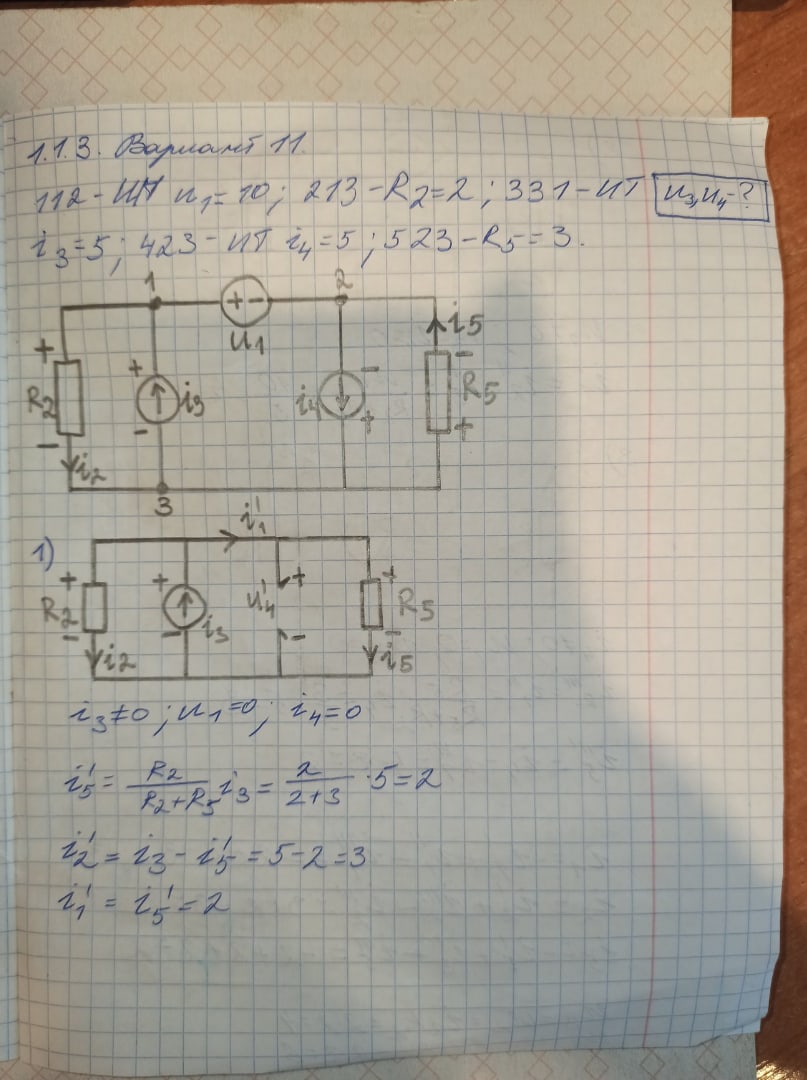 1.1.3. Вариант 11.
112 - ИН u₁ = 10; 213 - R₂ = 2; 331 - ИТ u₃, u₄ - ?
i₃ = 5; 423 - ИТ i₄ = 5; 523 - R₅ = 3.
1 2
+ + - i5
u1
+ + -
R2 i3 i4 - R5
- - + +
i2
3
1) i₁'
+ + + +
R2 i3 u₄' R5
- - - -
i2 i5
i₃ ≠ 0; u₁ = 0; i₄ = 0
i₅' = R₂ / (R₂ + R₅) i₃ = 2 / (2 + 3) · 5 = 2
i₂' = i₃ - i₅' = 5 - 2 = 3
i₁' = i₅' = 2